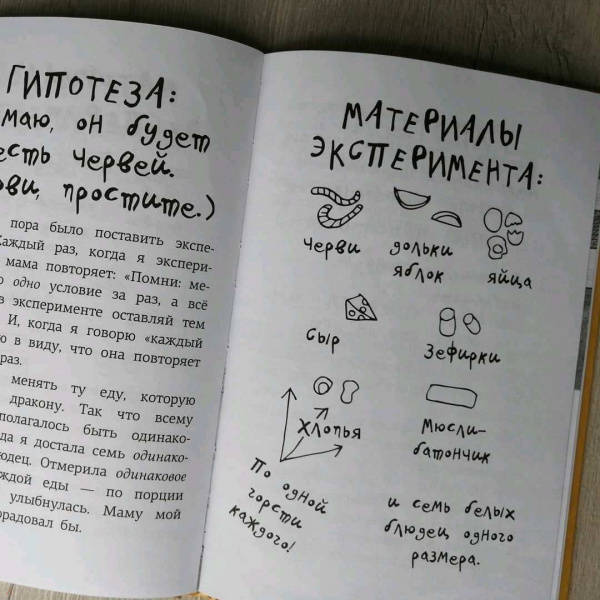 ГИПОТЕЗА:
он будет
есть червей.
простите.)
пора было поставить экспе-
Каждый раз, когда я экспери-
мама повторяет: «Помни: ме-
одно условие за раз, а всё
в эксперименте оставляй тем
И, когда я говорю «каждый
в виду, что она повторяет
раз.
менять ту еду, которую
дракону. Так что всему
полагалось быть одинако-
я достала семь одинако-
Отмерила одинаковое
еды — по порции
улыбнулась. Маму мой
порадовал бы.
МАТЕРИАЛЫ
ЭКСПЕРИМЕНТА:
Черви
дольки
яблок
яйца
Сыр
Зефирки
Хлопья
Мюсли-
батончик
По одной
горсти
каждого!
и семь белых
блюдец одного
размера.